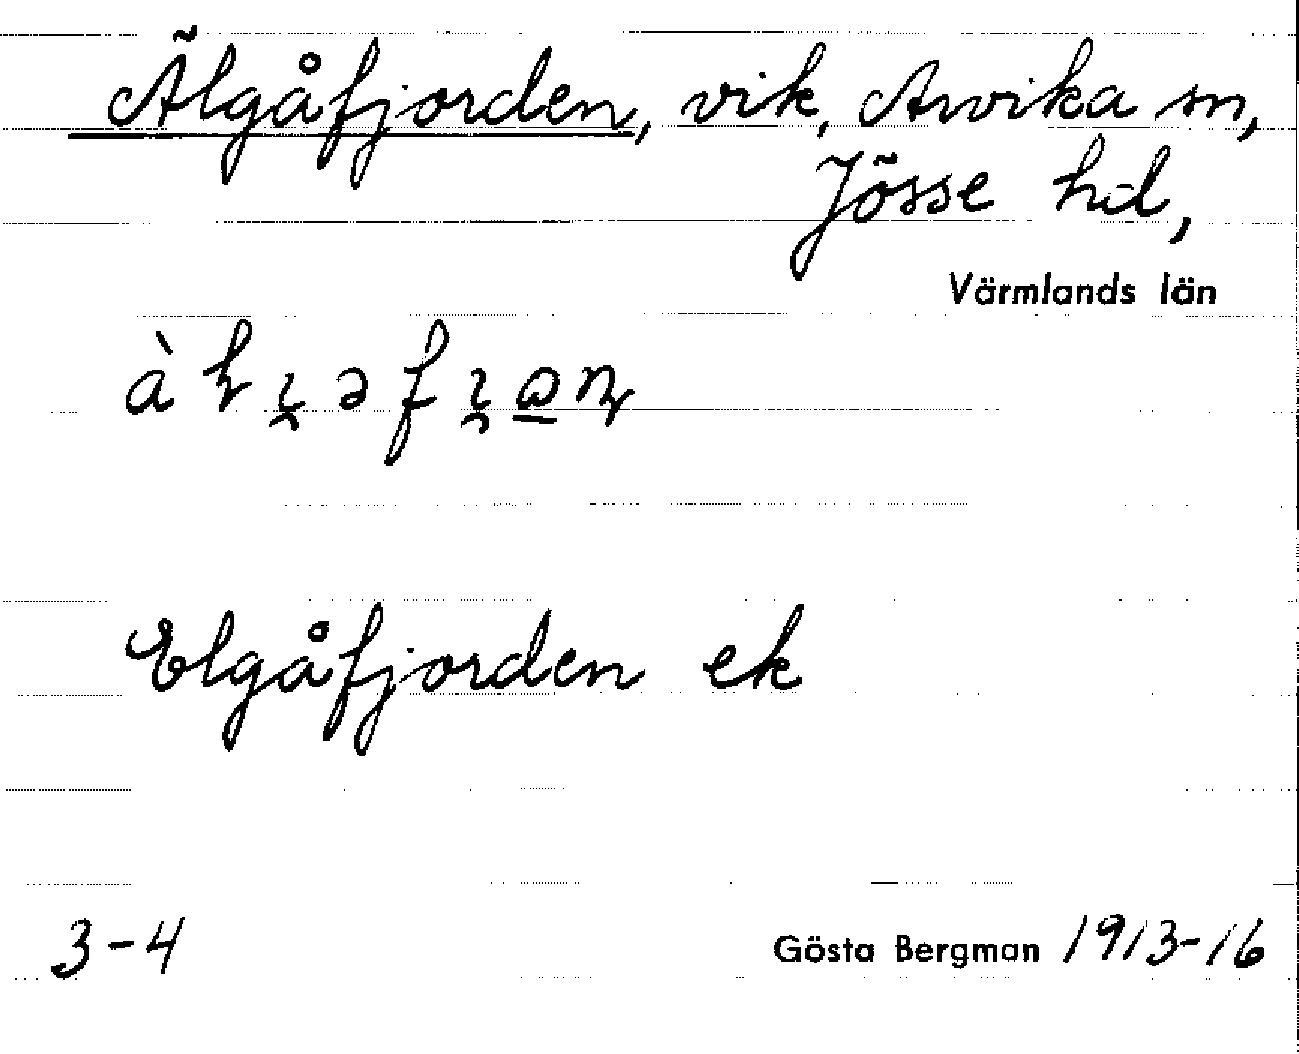 Älgåfjorden, vik, Arvika sn,
Jösse hd,
Värmlands län
Elgåfjorden ek
3-4
Gösta Bergman 1913-16